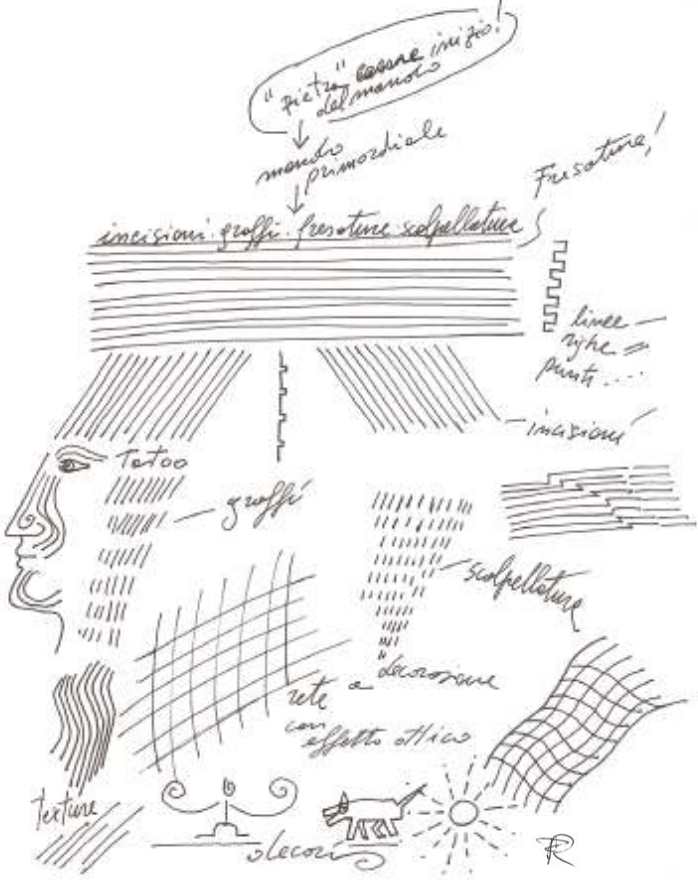 "Pietra" essere inizio!
del mondo
mondo
primordiale
Fresature!
incisioni·graffi·fresature·scalpellature
linee
righe
punti....
incisioni
Tatoo
graffi
scalpellature
decorazione
rete a
con
effetto ottico
texture
decori